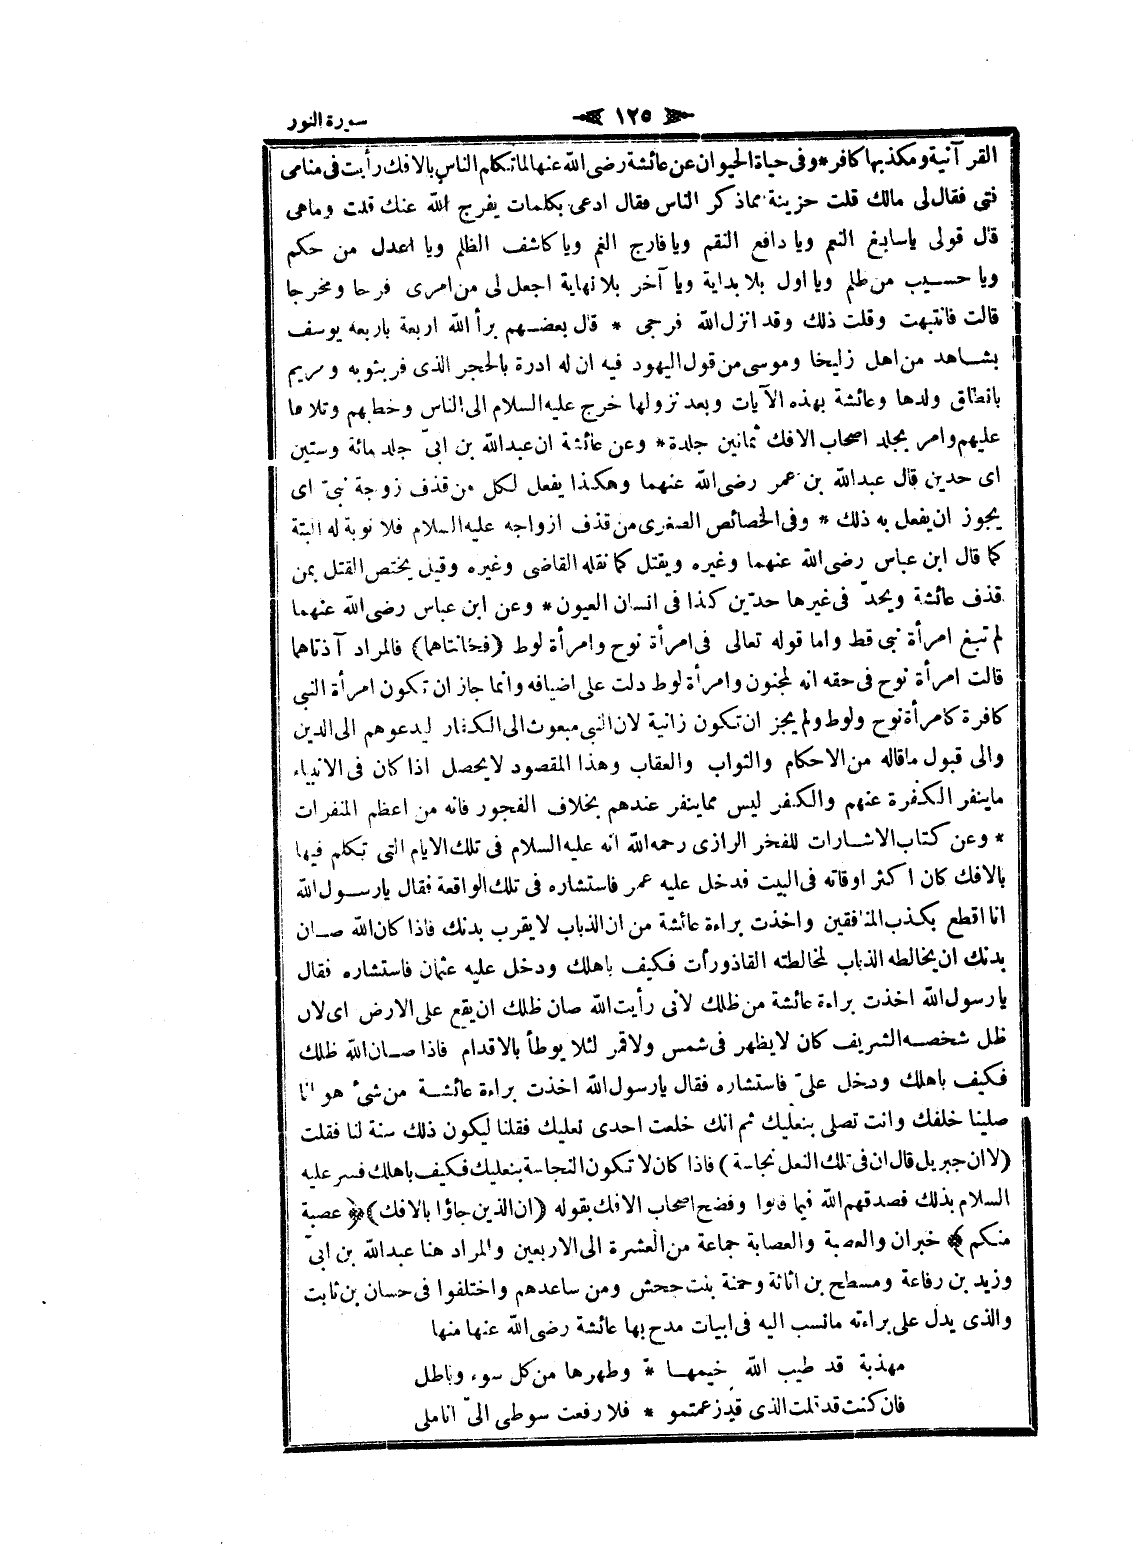 سورة النور
١٢٥
القرآنية ومكذبها كافر * وفى حياة الحيوان عن عائشة رضى الله عنها لما تكلم الناس بالافك رأيت فى منامى
فتى فقال لى مالك قلت حزينة مماذكر الناس فقال ادعى بكلمات يفرج الله عنك قلت وماهى
قال قولى ياسابغ النعم ويا دافع النقم ويا فارج الغم ويا كاشف الظلم ويا اعدل من حكم
ويا حسيب من ظلم ويا اول بلا بداية ويا آخر بلا نهاية اجعل لى من امرى فرحا ومخرجا
قالت فانتبهت وقلت ذلك وقد انزل الله فرجى * قال بعضهم برأ الله اربعة باربعه يوسف
بشاهد من اهل زليخا وموسى من قول اليهود فيه ان له ادرة بالحجر الذى فر بثوبه ومريم
بانطاق ولدها وعائشة بهذه الآيات وبعد نزولها خرج عليه السلام الى الناس وخطبهم وتلاها
عليهم وامر بجلد اصحاب الافك ثمانين جلدة * وعن عائشة ان عبدالله بن ابىّ جلد مائة وستين
اى حدين قال عبدالله بن عمر رضى الله عنهما وهكذا يفعل لكل من قذف زوجة نبىّ اى
يجوز ان يفعل به ذلك * وفى الخصائص الصغرى من قذف ازواجه عليه السلام فلا توبة له البتة
كما قال ابن عباس رضى الله عنهما وغيره ويقتل كما نقله القاضى وغيره وقيل يختص القتل بمن
قذف عائشة ويحدّ فى غيرها حدّين كذا فى انسان العيون * وعن ابن عباس رضى الله عنهما
لم تبغ امرأة نبى قط واما قوله تعالى فى امرأة نوح وامرأة لوط (فخانتاهما) فالمراد آذتاهما
قالت امرأة نوح فى حقه انه لمجنون وامرأة لوط دلت على اضيافه وانما جاز ان تكون امرأة النبى
كافرة كامرأة نوح ولوط ولم يجز ان تكون زانية لان النبى مبعوث الى الكفار ليدعوهم الى الدين
والى قبول ماقاله من الاحكام والثواب والعقاب وهذا المقصود لايحصل اذا كان فى الانبياء
ماينفر الكفرة عنهم والكفر ليس مماينفر عندهم بخلاف الفجور فانه من اعظم المنفرات
* وعن كتاب الاشارات للفخر الرازى رحمه الله انه عليه السلام فى تلك الايام التى تكلم فيها
بالافك كان اكثر اوقاته فى البيت فدخل عليه عمر فاستشاره فى تلك الواقعة فقال يارسول الله
انا اقطع بكذب المنافقين واخذت براءة عائشة من ان الذباب لايقرب بدنك فاذا كان الله صان
بدنك ان يخالطه الذباب لمخالطته القاذورات فكيف باهلك ودخل عليه عثمان فاستشاره فقال
يارسول الله اخذت براءة عائشة من ظلك لانى رأيت الله صان ظلك ان يقع على الارض اى لان
ظل شخصه الشريف كان لايظهر فى شمس ولاقمر لئلا يوطأ بالاقدام فاذا صان الله ظلك
فكيف باهلك ودخل علىّ فاستشاره فقال يارسول الله اخذت براءة عائشة من شىء هو انا
صلينا خلفك وانت تصلى بنعليك ثم انك خلعت احدى نعليك فقلنا ليكون ذلك سنة لنا فقلت
(لا ان جبريل قال ان فى تلك النعل نجاسة) فاذا كان لا تكون النجاسة بنعليك فكيف باهلك فسر عليه
السلام بذلك فصدقهم الله فيما قالوا وفضح اصحاب الافك بقوله (ان الذين جاؤا بالافك) ﴿ عصبة
منكم ﴾ خبران والعصبة والعصابة جماعة من العشرة الى الاربعين والمراد هنا عبدالله بن ابىّ
وزيد بن رفاعة ومسطح بن اثاثة وحمنة بنت جحش ومن ساعدهم واختلفوا فى حسان بن ثابت
والذى يدل على براءته مانسب اليه فى ابيات مدح بها عائشة رضى الله عنها منها
مهذبة قد طيب الله خيمها * وطهرها من كل سوء وباطل
فان كنت قد قلت الذى قد زعمتمو * فلا رفعت سوطى الىّ اناملى